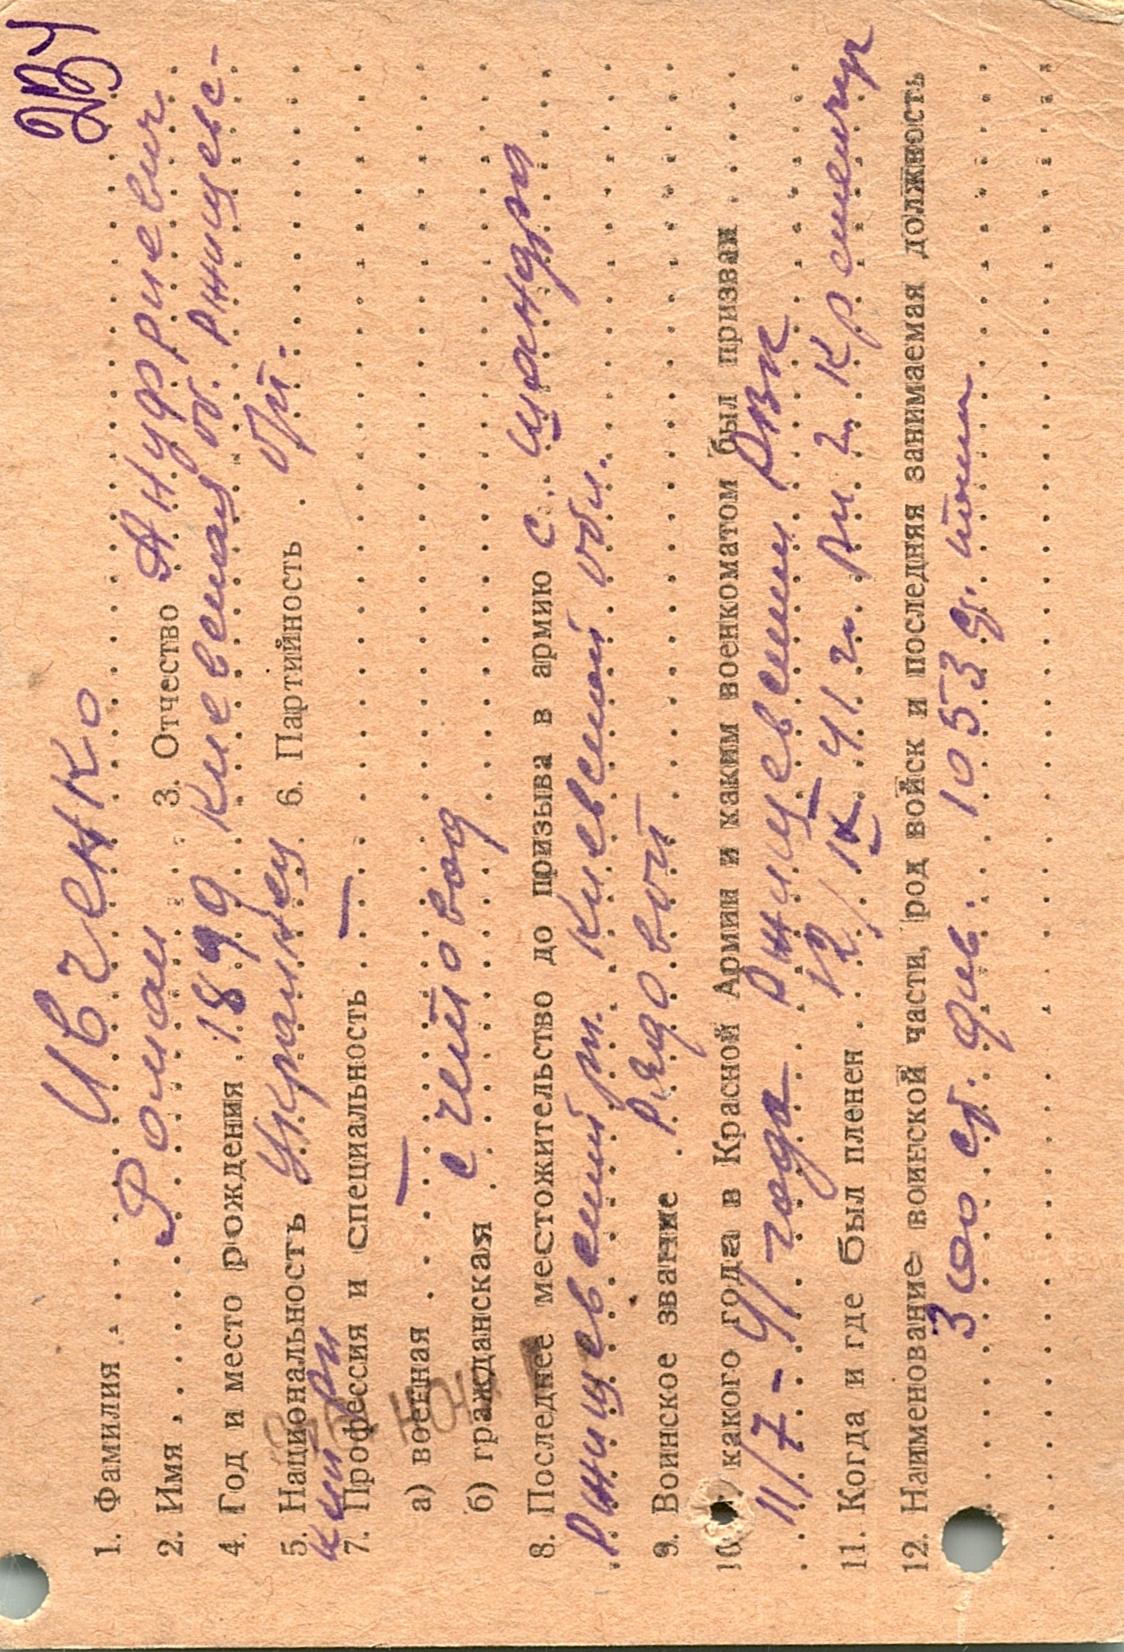 234
1. Фамилия Ивченко
2. Имя Роман 3. Отчество Ануфриевич
4. Год и место рождения 1899 Киевская об. Ржищевс-
кий рн
5. Национальность Украинец 6. Партийность бп.
7. Профессия и специальность —
а) военная —
б) гражданская счетовод
8. Последнее местожительство до призыва в армию с.
Ржищевский рн. Киевской обл.
9. Воинское звание Рядовой
10. С какого года в Красной Армии и каким военкоматом был призван
11/7 - 41 года Ржищевским РВК
11. Когда и где был пленен 12/IX 41 г.
12. Наименование воинской части, род войск и последняя занимаемая должность
300 ст. див. 1053
ИЮН 1946